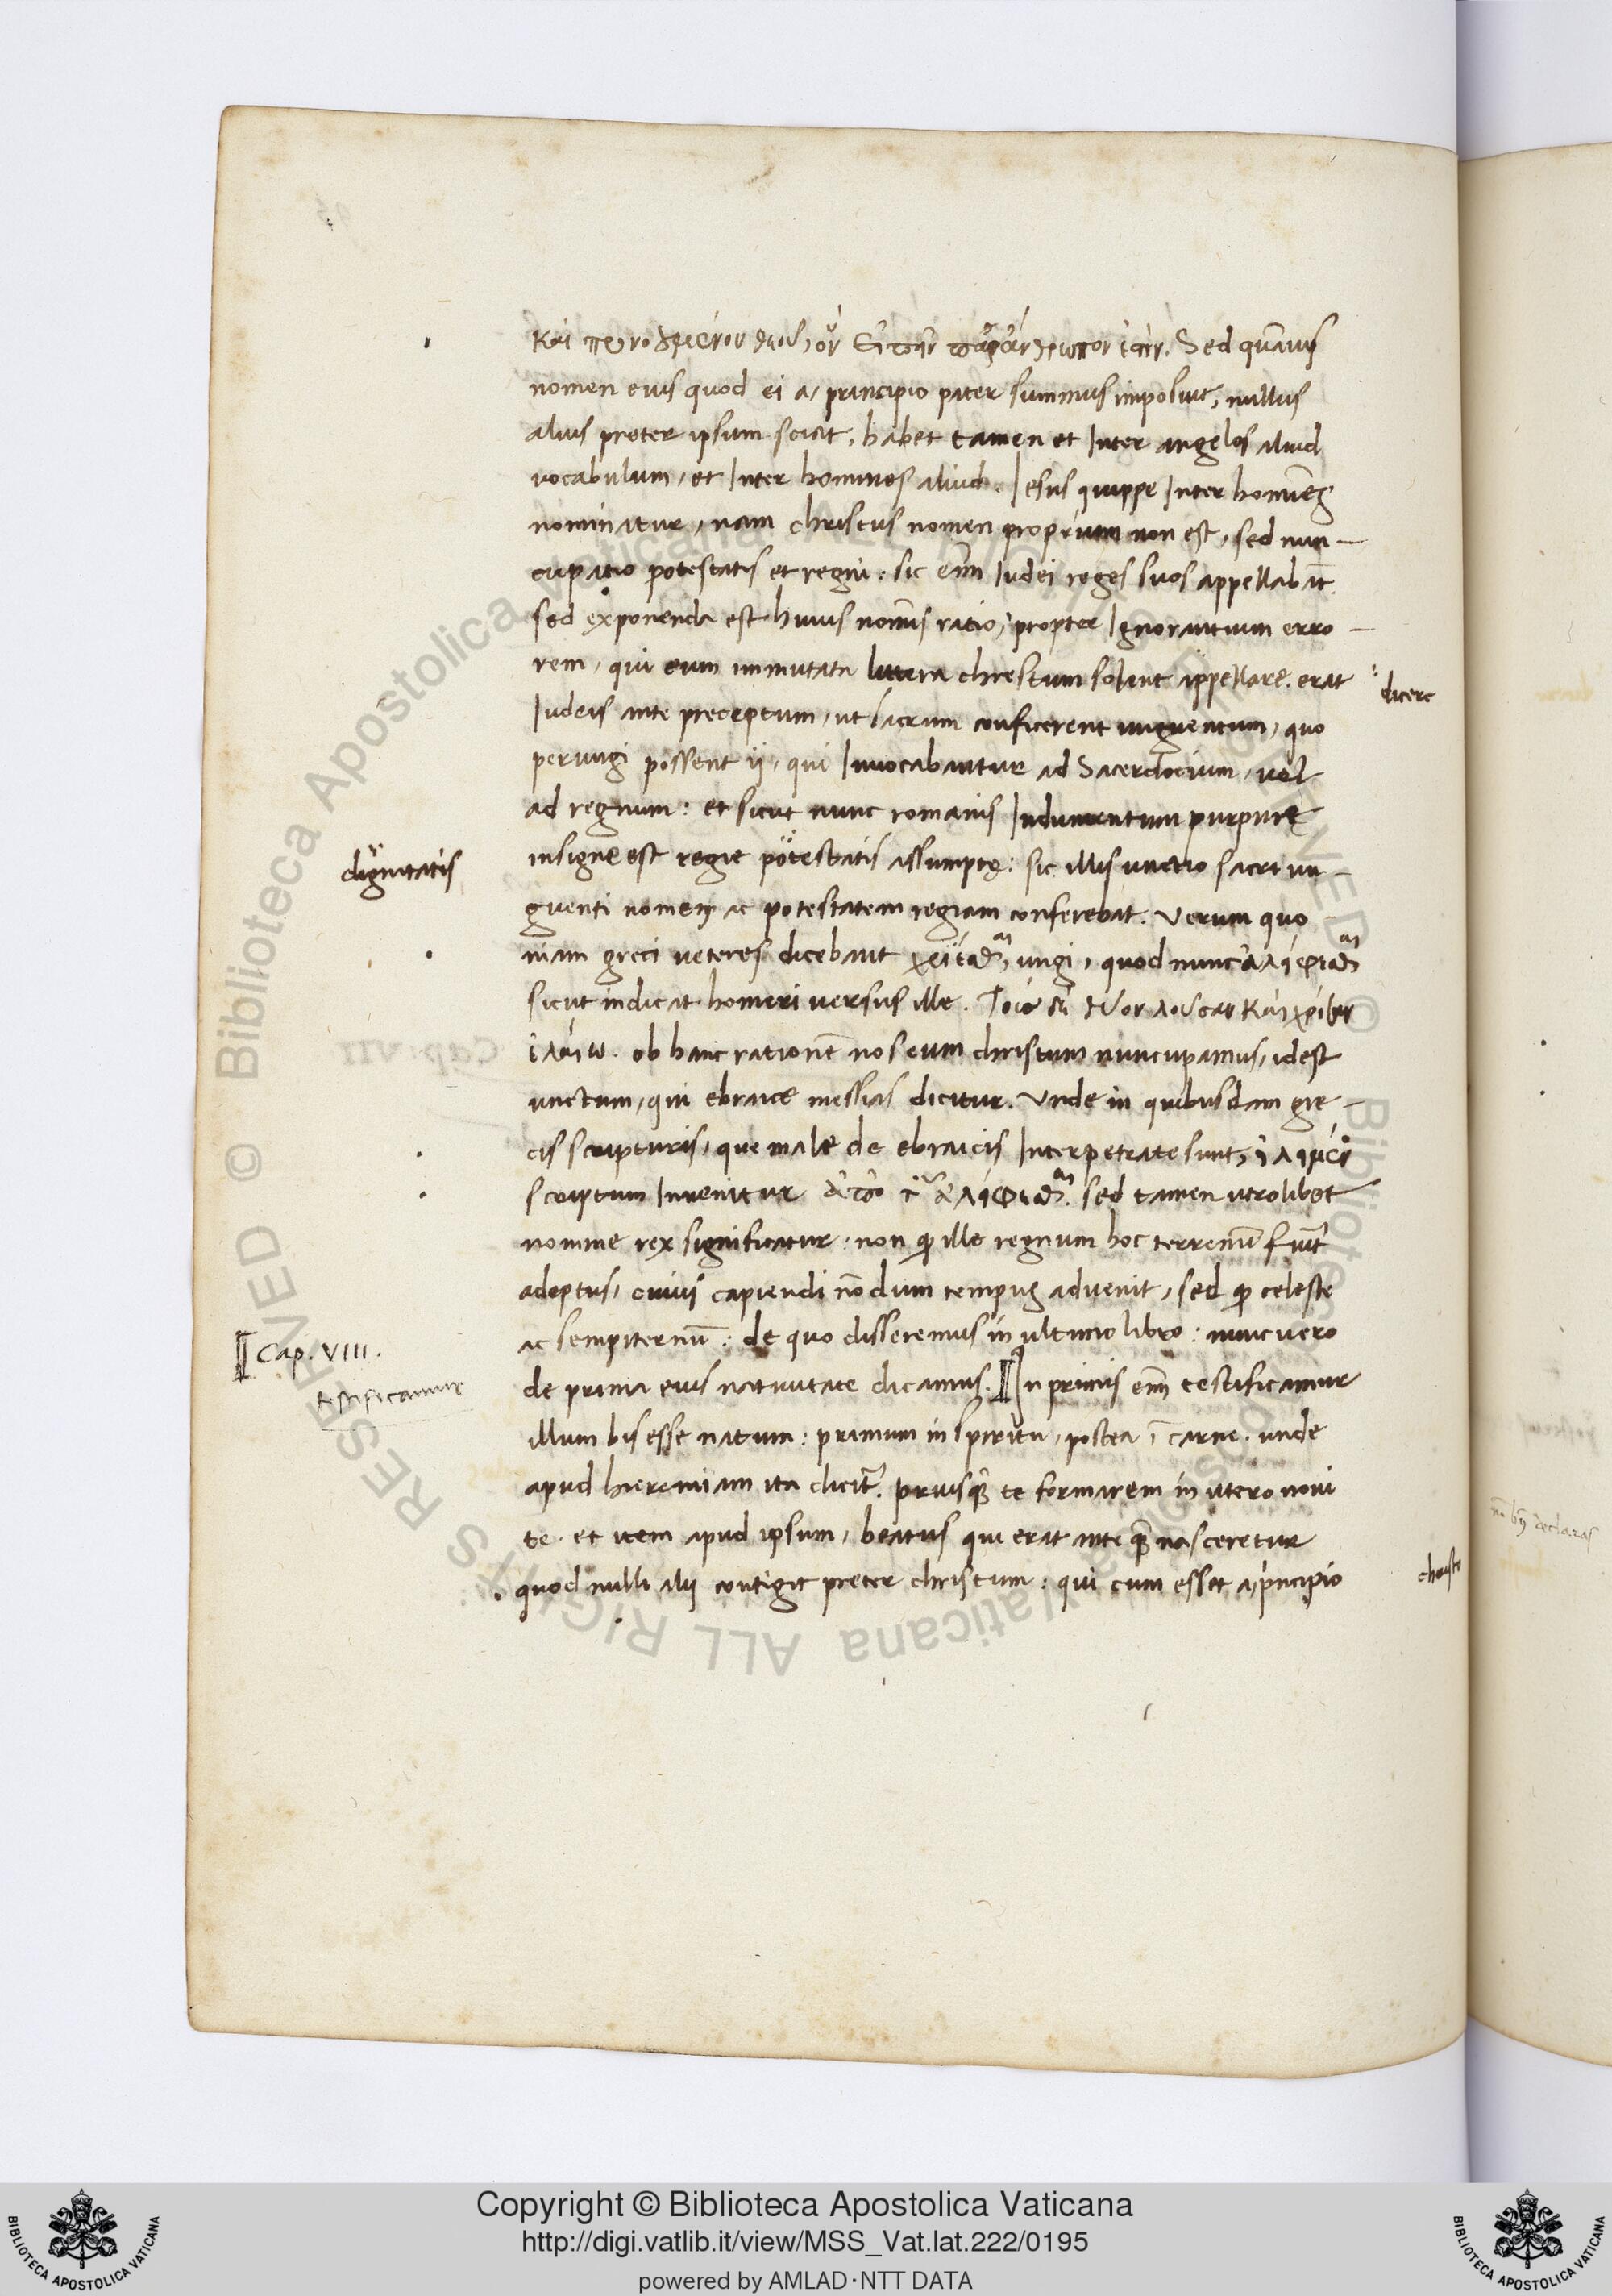 Sed quāuis
nomen eius quod ei a principio pater summus imposuit, nullus
alius preter ipsum sciat, habet tamen et Inter angelos aliud
uocabulum, et Inter homines aliud. Iesus quippe Inter homines
nominatur, nam christus nomen proprium non est, sed nun-
cupatio potestatis et regni: sic enī Iudei reges suos appellabāt.
sed exponenda est huius nomīs ratio, propter Ignorantium erro-
rem, qui eum immutata littera chrestum solent appellare. erat
dicere
Iudeis ante preceptum, ut sacrum conficerent unguentum, quo
perungi possent ij, qui Inuocabantur ad Sacerdotium, uel
ad regnum: et sicut nunc romanis Indumentum purpurę
insigne est regie potestatis assumptę: sic illis unctio sacri un-
dignitatis
guenti nomen ac potestatem regiam conferebat. Verum quo
niam greci ueteres dicebant ungi, quod nunc
sicut indicat homeri uersus ille.
ἐλαίω. ob hanc rationē nos eum christum nuncupamus, idest
unctum, qui ebraice messias dicitur. Unde in quibusdam gre-
cis scripturis, que male de ebraicis Interpetrate sunt,
scriptum Inuenitur sed tamen utrolibet
nomine rex significatur: non ꝙ ille regnum hoc terrenū fuīt
adeptus, cuius capiendi nōdum tempus aduenit, sed ꝙ celeste
ac sempiternū: de quo disseremus in ultimo libro: nunc uero
Cap. VIII.
de prima eius natiuitate dicamus. In primis enī testificamur
testificamur
illum bis esse natum: primum in spiritu, postea ī carne. unde
apud hieremiam ita dicit᷑. priusq̃ te formarem in utero noui
te. et item apud ipsum, beatus qui erat ante q̃ nasceretur
quod nulli alij contigit preter christum: qui cum esset a principio
Copyright © Biblioteca Apostolica Vaticana
http://digi.vatlib.it/view/MSS_Vat.lat.222/0195
powered by AMLAD·NTT DATA
BIBLIOTECA APOSTOLICA VATICANA
BIBLIOTECA APOSTOLICA VATICANA